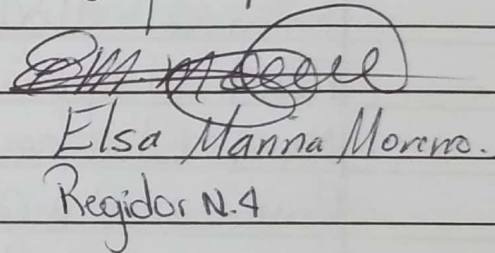 Elsa Marina Moreno.
Regidor N.4